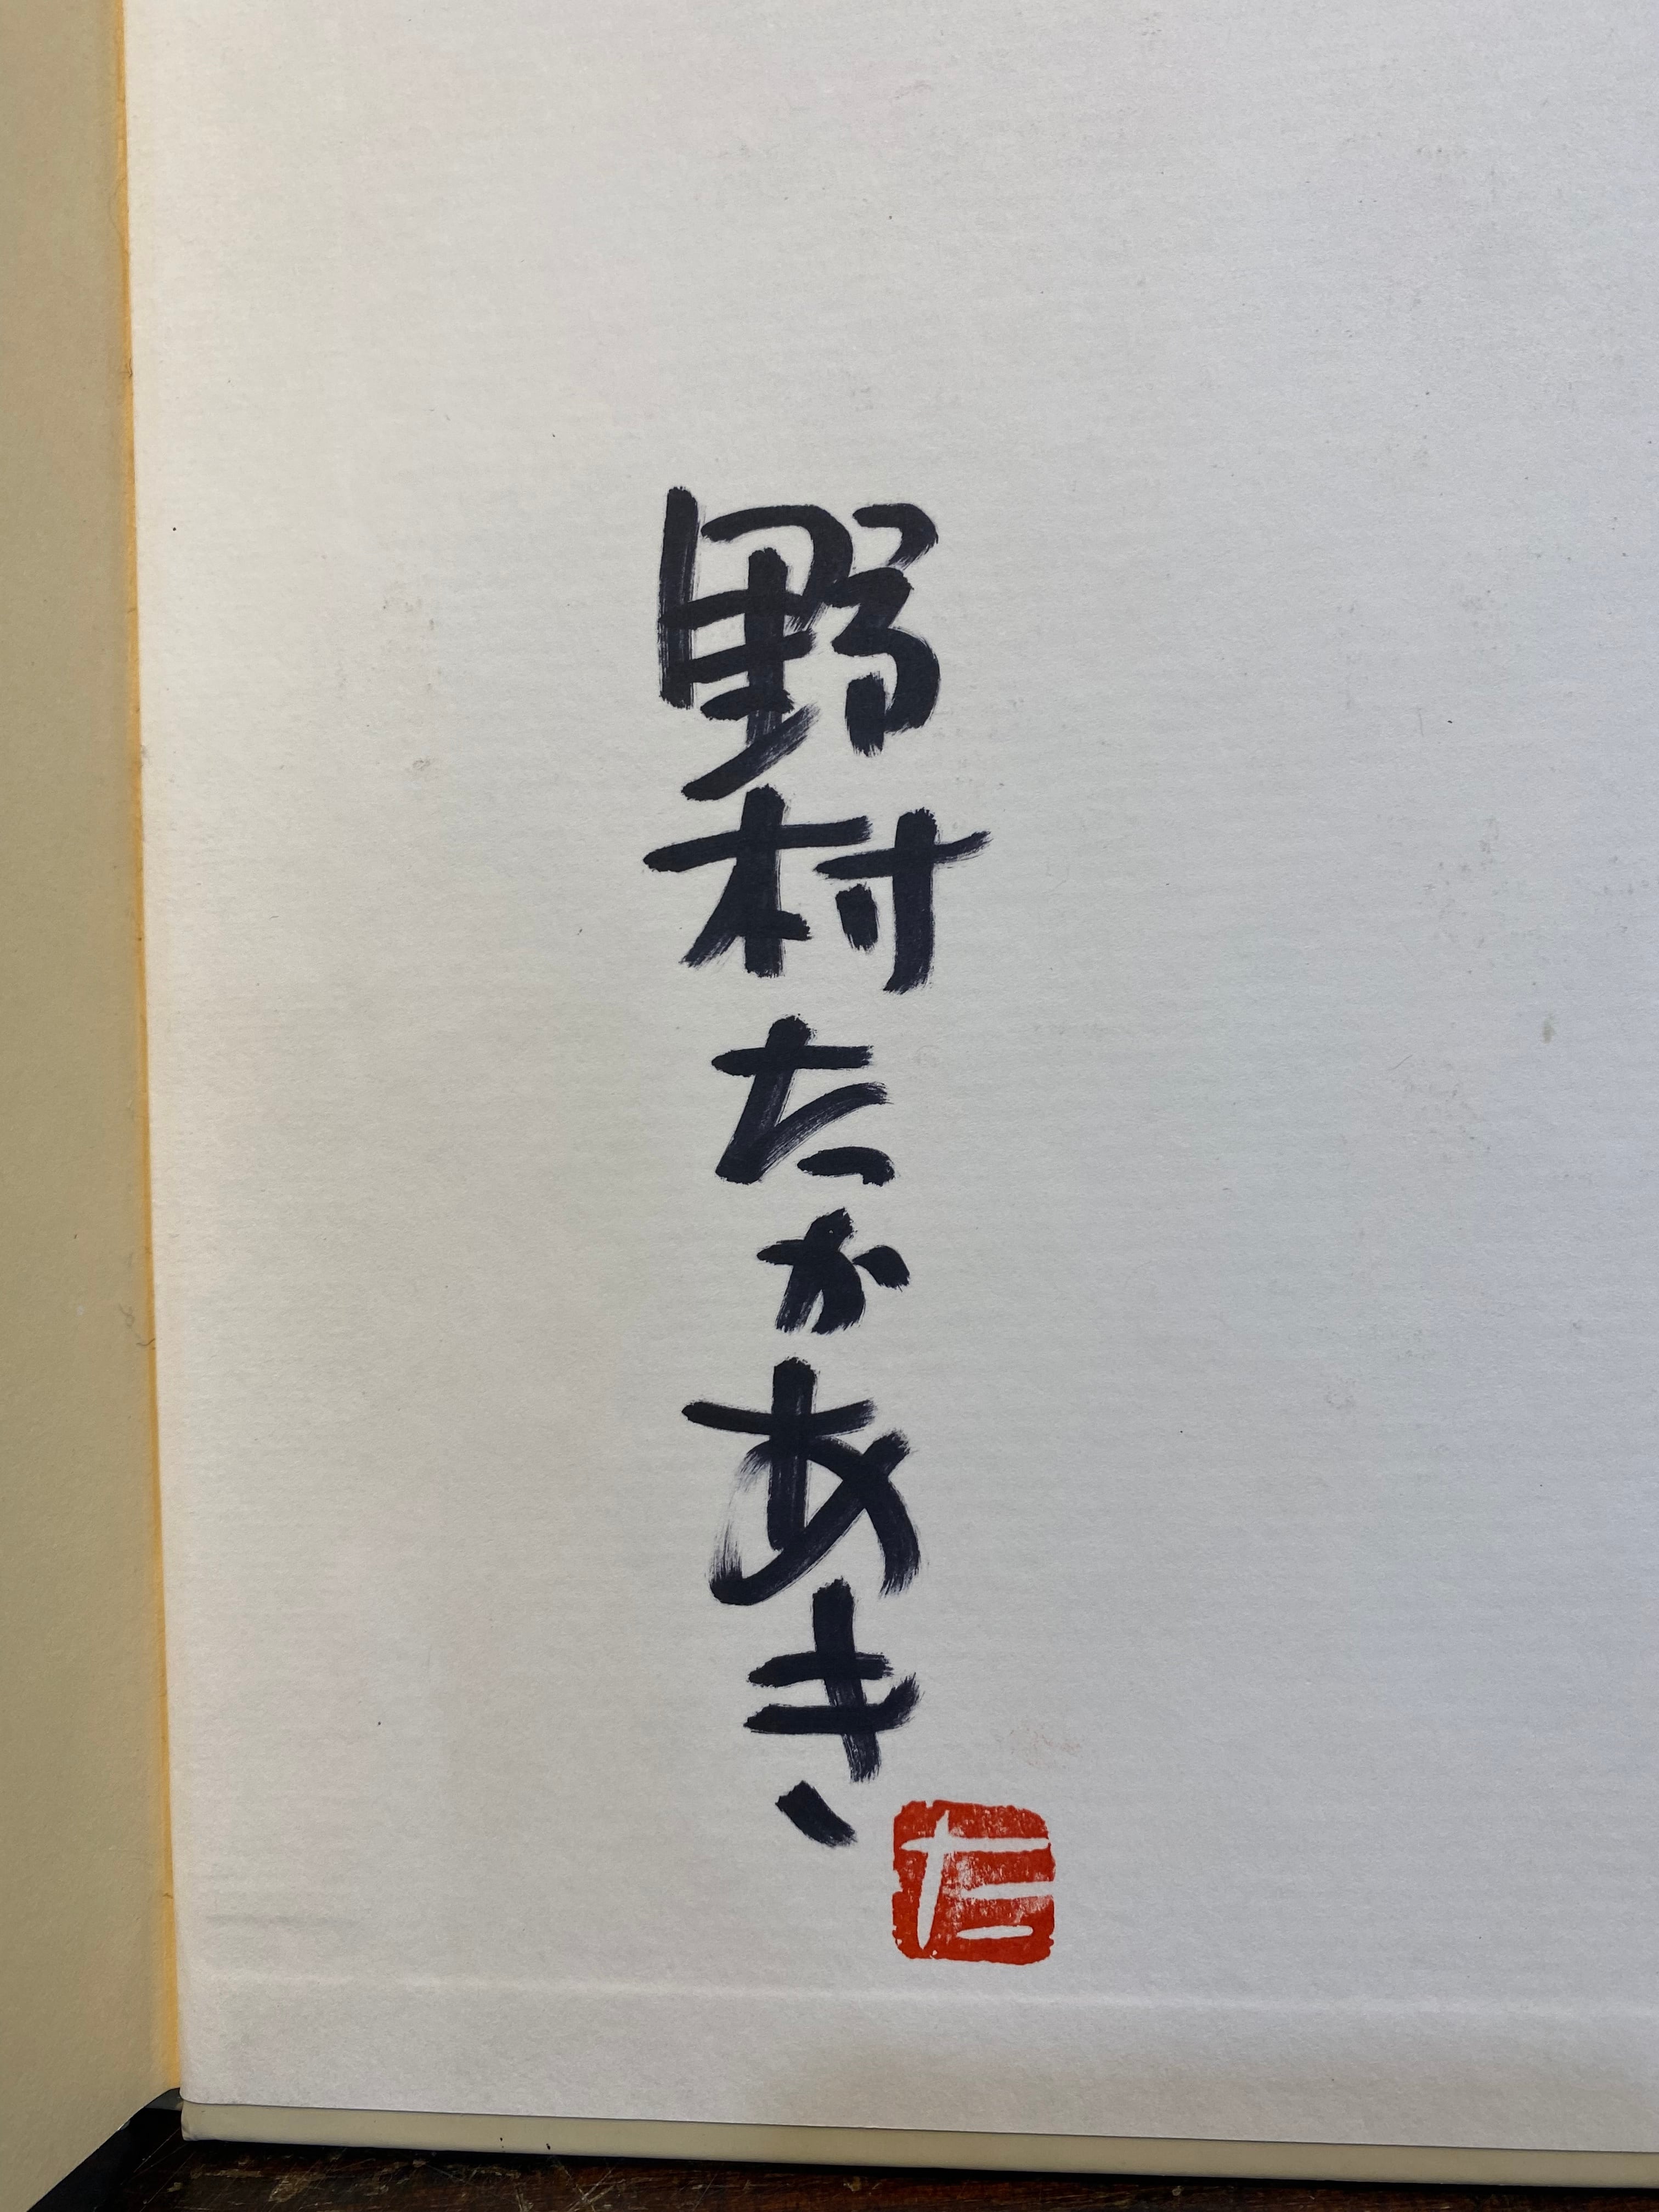 野村たかあき
た